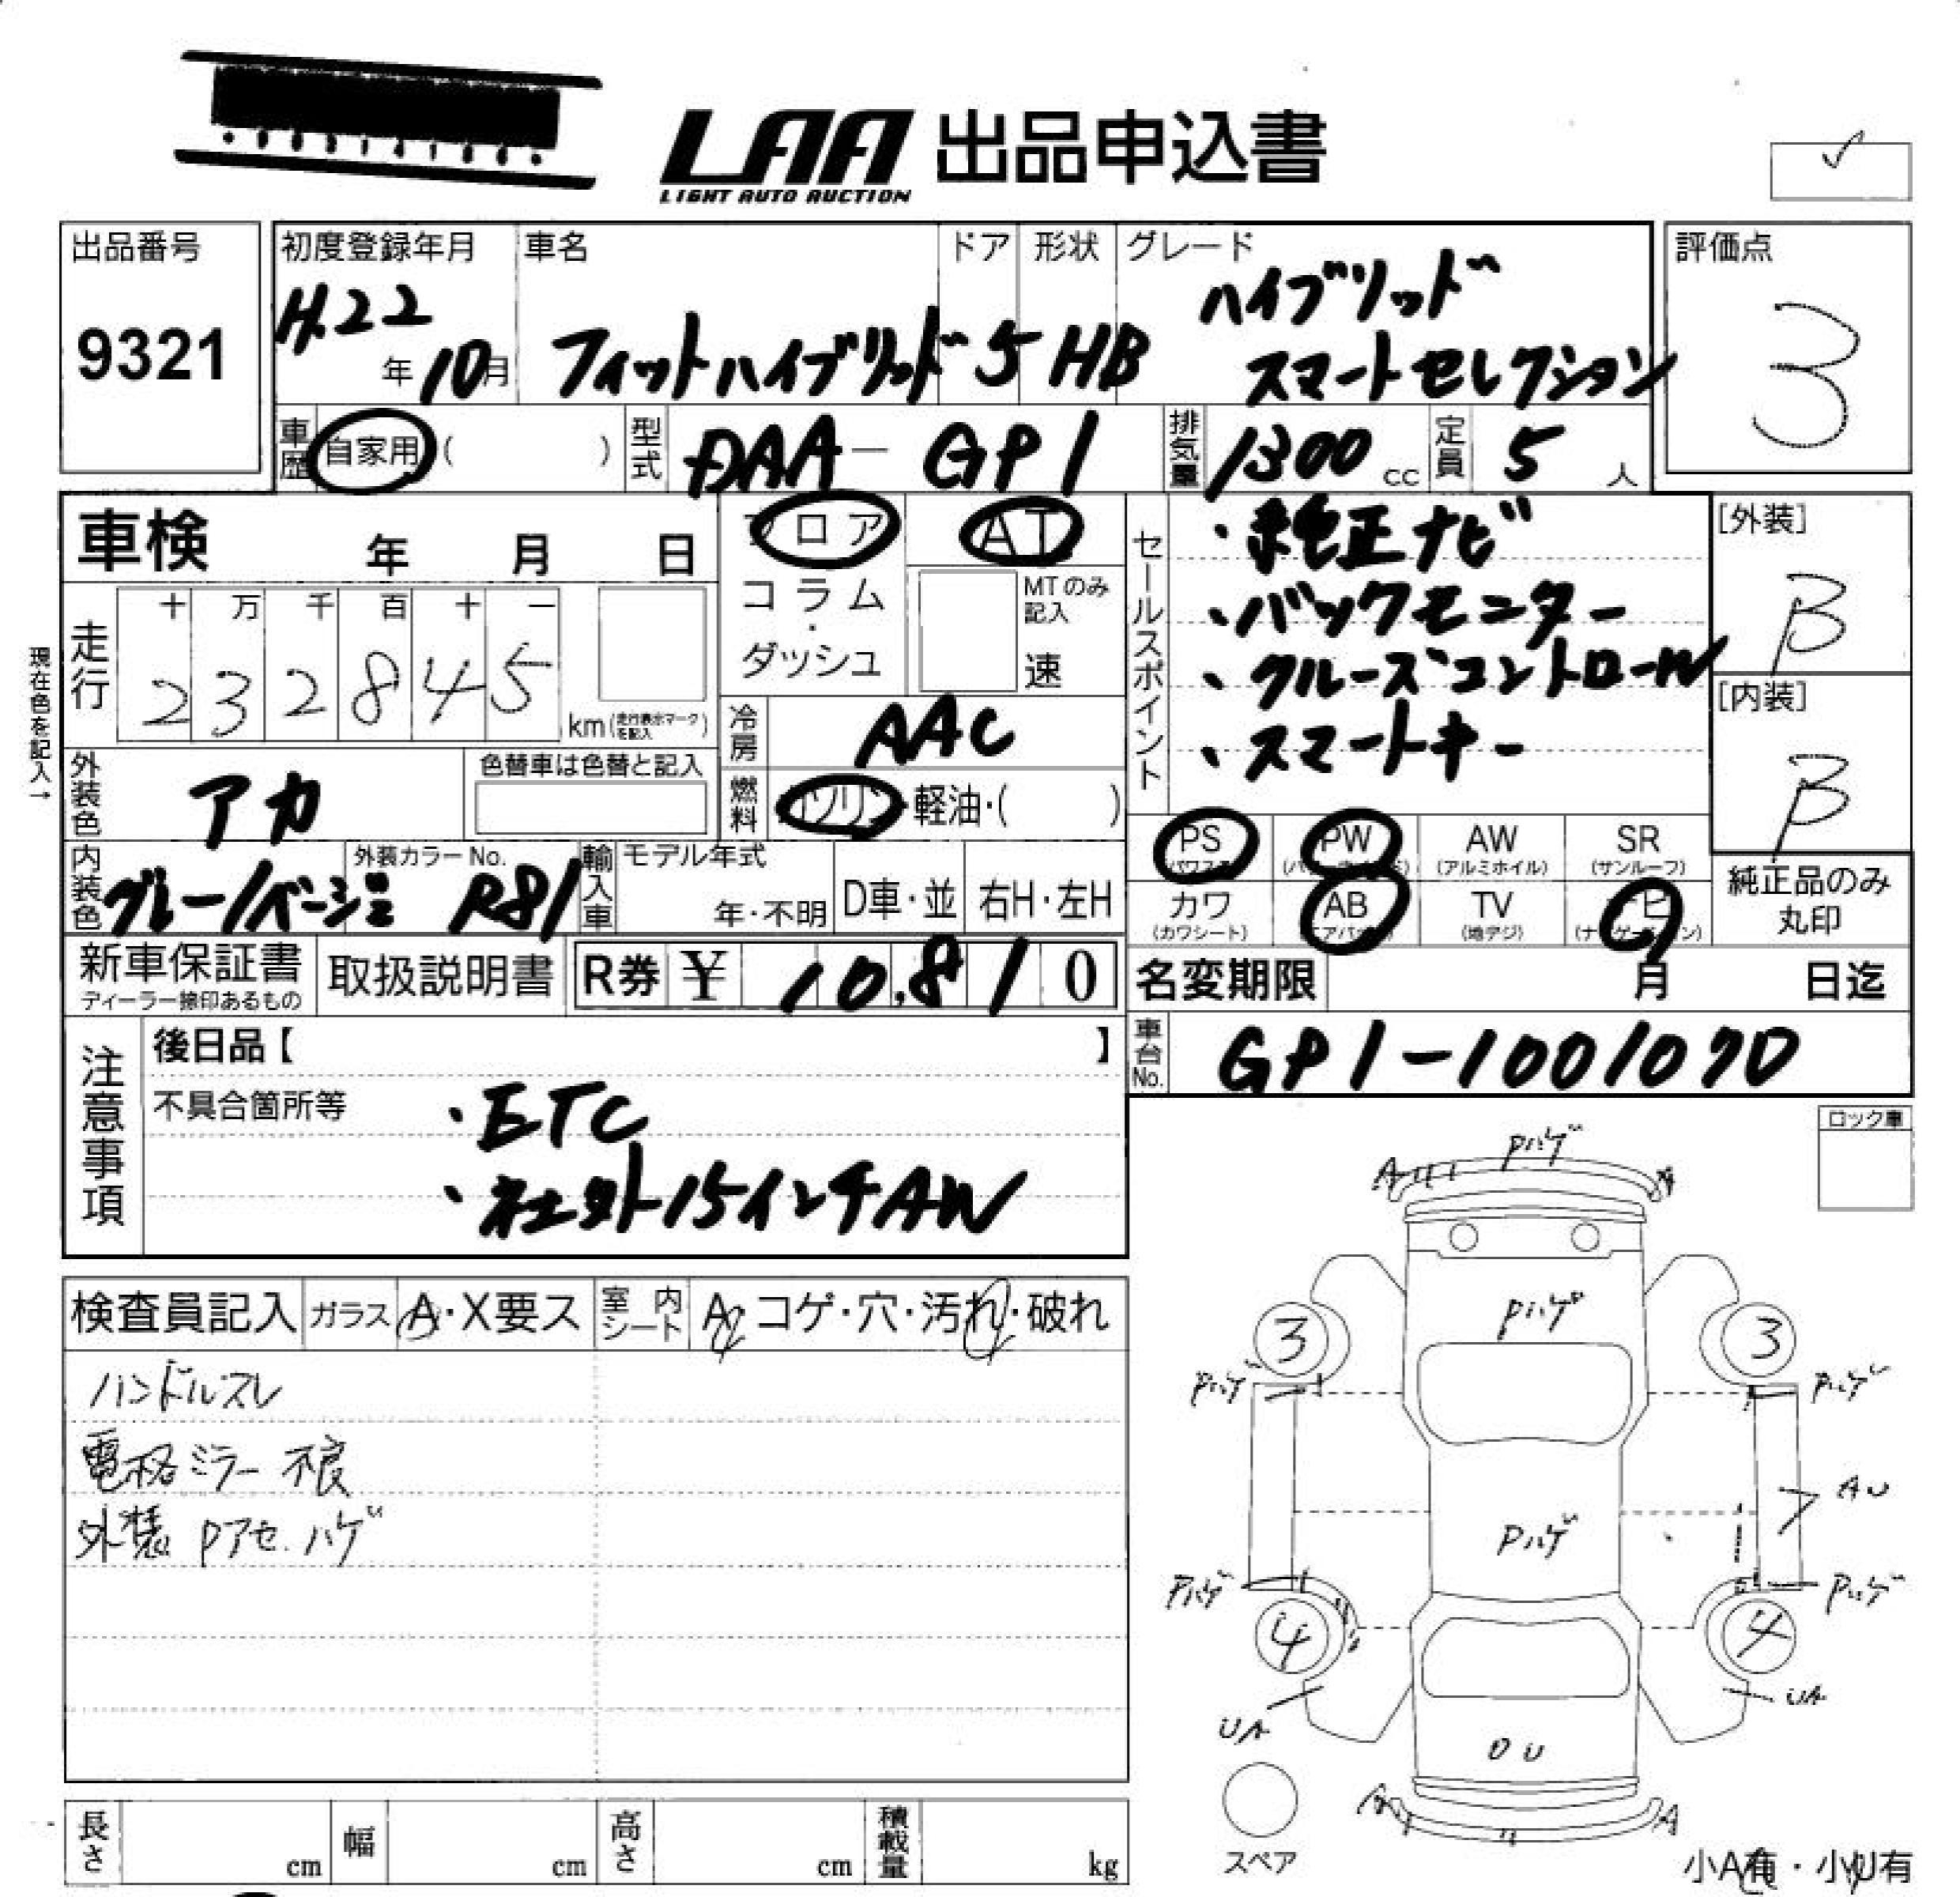 LAA 出品申込書
LIGHT AUTO AUCTION
出品番号
9321
初度登録年月
H.22年10月
車名
フィットハイブリッド
ドア
5
形状
HB
グレード
ハイブリッド
スマートセレクション
評価点
3
車歴
自家用 ( )
型式
DAA-GP1
排気量
1300 cc
定員
5人
車検 年 月 日
フロア
コラム・ダッシュ
AT
MTのみ記入
速
走行
十 万 千 百 十 一
2 3 2 8 4 5
km (走行表示マークを記入)
現在色を記入→
冷房
AAC
燃料
ガソリン・軽油・( )
外装色
アカ
色替車は色替と記入
内装色
グレー/ベージュ
外装カラーNo.
R81
輸入車
モデル年式
年・不明
D車・並
右H・左H
セールスポイント
・純正ナビ
・バックモニター
・クルーズコントロール
・スマートキー
[外装]
B
[内装]
B
PS (パワステ)
PW (パワーウィンドウ)
AW (アルミホイル)
SR (サンルーフ)
カワ (カワシート)
AB (エアバッグ)
TV (地デジ)
ナビ (ナビゲーション)
純正品のみ丸印
新車保証書
ディーラー捺印あるもの
取扱説明書
R券 ¥ 10,810
名変期限 月 日迄
車台No.
GP1-1001070
注意事項
後日品【 】
不具合箇所等
・ETC
・社外15インチAW
ロック車
検査員記入
ガラス A・X要ス
室内シート A・コゲ・穴・汚れ・破れ
ハンドルスレ
電格ミラー不良
外装 Pアセ.ハゲ
Pハゲ
A
A
Pハゲ
3
3
Pハゲ
Pハゲ
AU
Pハゲ
Pハゲ
Pハゲ
4
4
UA
UA
DU
A
A
スペア
小A有・小U有
長さ cm
幅 cm
高さ cm
積載量 kg